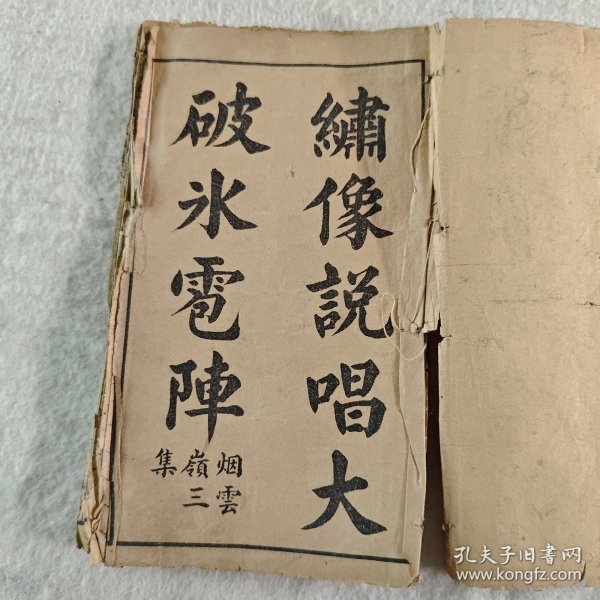 繡像説唱大
破氷雹陣
烟雲
嶺三
集
孔夫子旧书网
www.kongfz.com